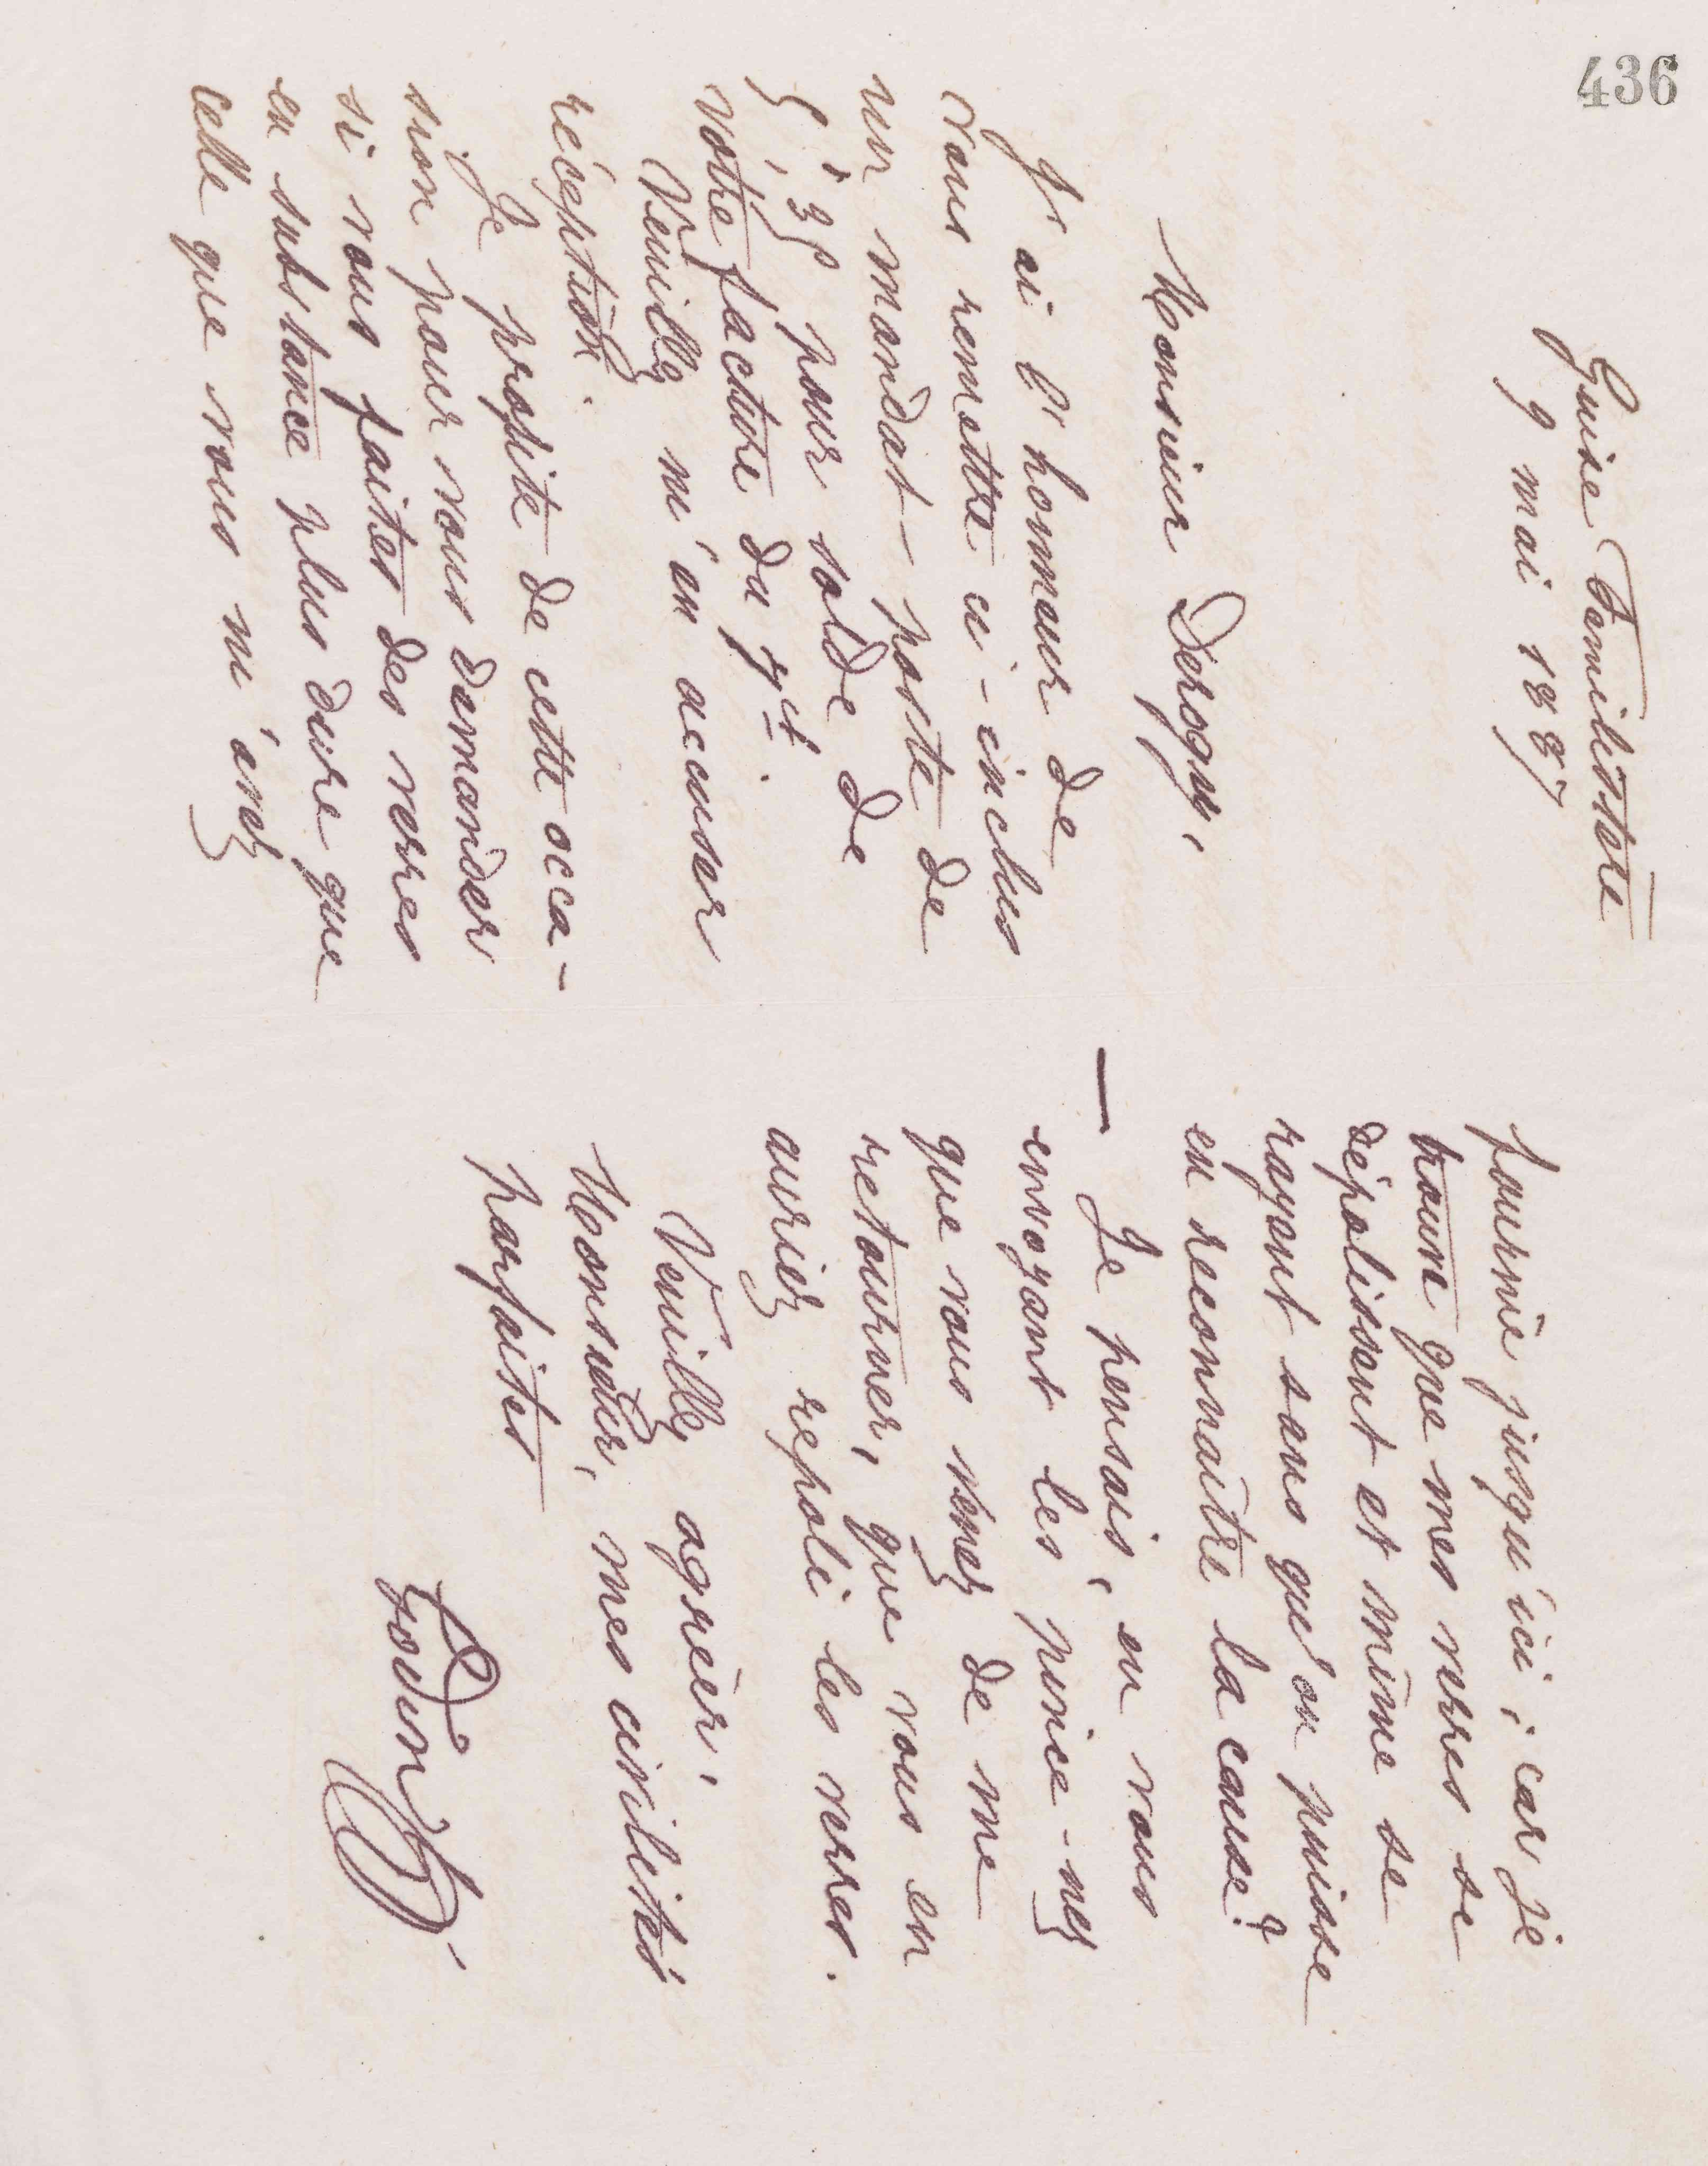 436
Guise Familistère
9 mai 1887
Monsieur Derogy,
J'ai l'honneur de
vous remettre ci-inclus
un mandat-poste de
pour solde de
votre facture du 7 ct.
Veuillez m'en accuser
réception.
Je profite de cette occa-
sion pour vous demander
si vous faites des verres
en substance plus dure que
celle que vous m'avez
fournie jusqu'ici; car je
trouve que mes verres se
dépolissent et même se
rayent sans qu'on puisse
en reconnaître la cause?
— Je pensais, en vous
envoyant les pince-nez
que vous venez de me
retourner, que vous en
auriez repoli les verres.
Veuillez agréer,
Monsieur, mes civilités
parfaites
Godin